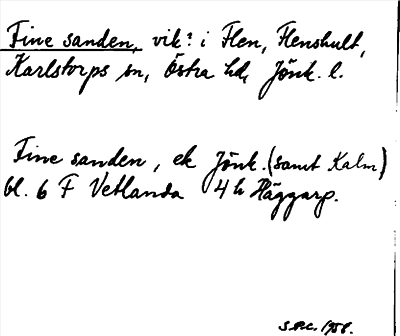 Fine sanden, vik? i Flen, Flenshult,
Karlstorps sn, Östra hd, Jönk. l.
Fine sanden, ek Jönk. (samt Kalm)
bl. 6 F Vetlanda 4 h Häggarp.
1958.